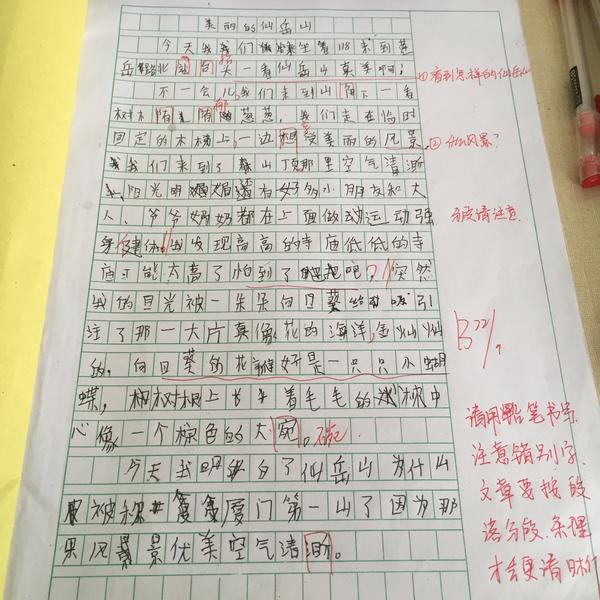 美丽的仙岳山
今天我我们坐着118来到莲
岳路北站向大一看仙岳山真美啊!
①看到怎样的仙岳山
不一会儿我们来到山下一看
树木陌陌葱葱,我们走在
固定的木梯上一边想受美丽的风景
②什么风景?
我们来到了山顶那里空气清渐
阳光明媚还有好多小朋友和大
人、爷爷奶奶都在上面做运动强
分段请注意.
身健体我发现高高的寺庙低低的寺
庙可能太高了怕到了吧,突然
我的目光被一朵朵向日葵给吸引
注了那一大片真像花的海洋,金灿灿
的,向日葵的花瓣好是一只只小蝴
蝶,树上长着毛毛的中
心像一个棕色的大宛。碗
请用铅笔书写
注意错别字
文章要按段
落分段,条理
才会更清晰
今天我明白了仙岳山为什么
被厦门第一山了因为那
里风景优美空气清渐。